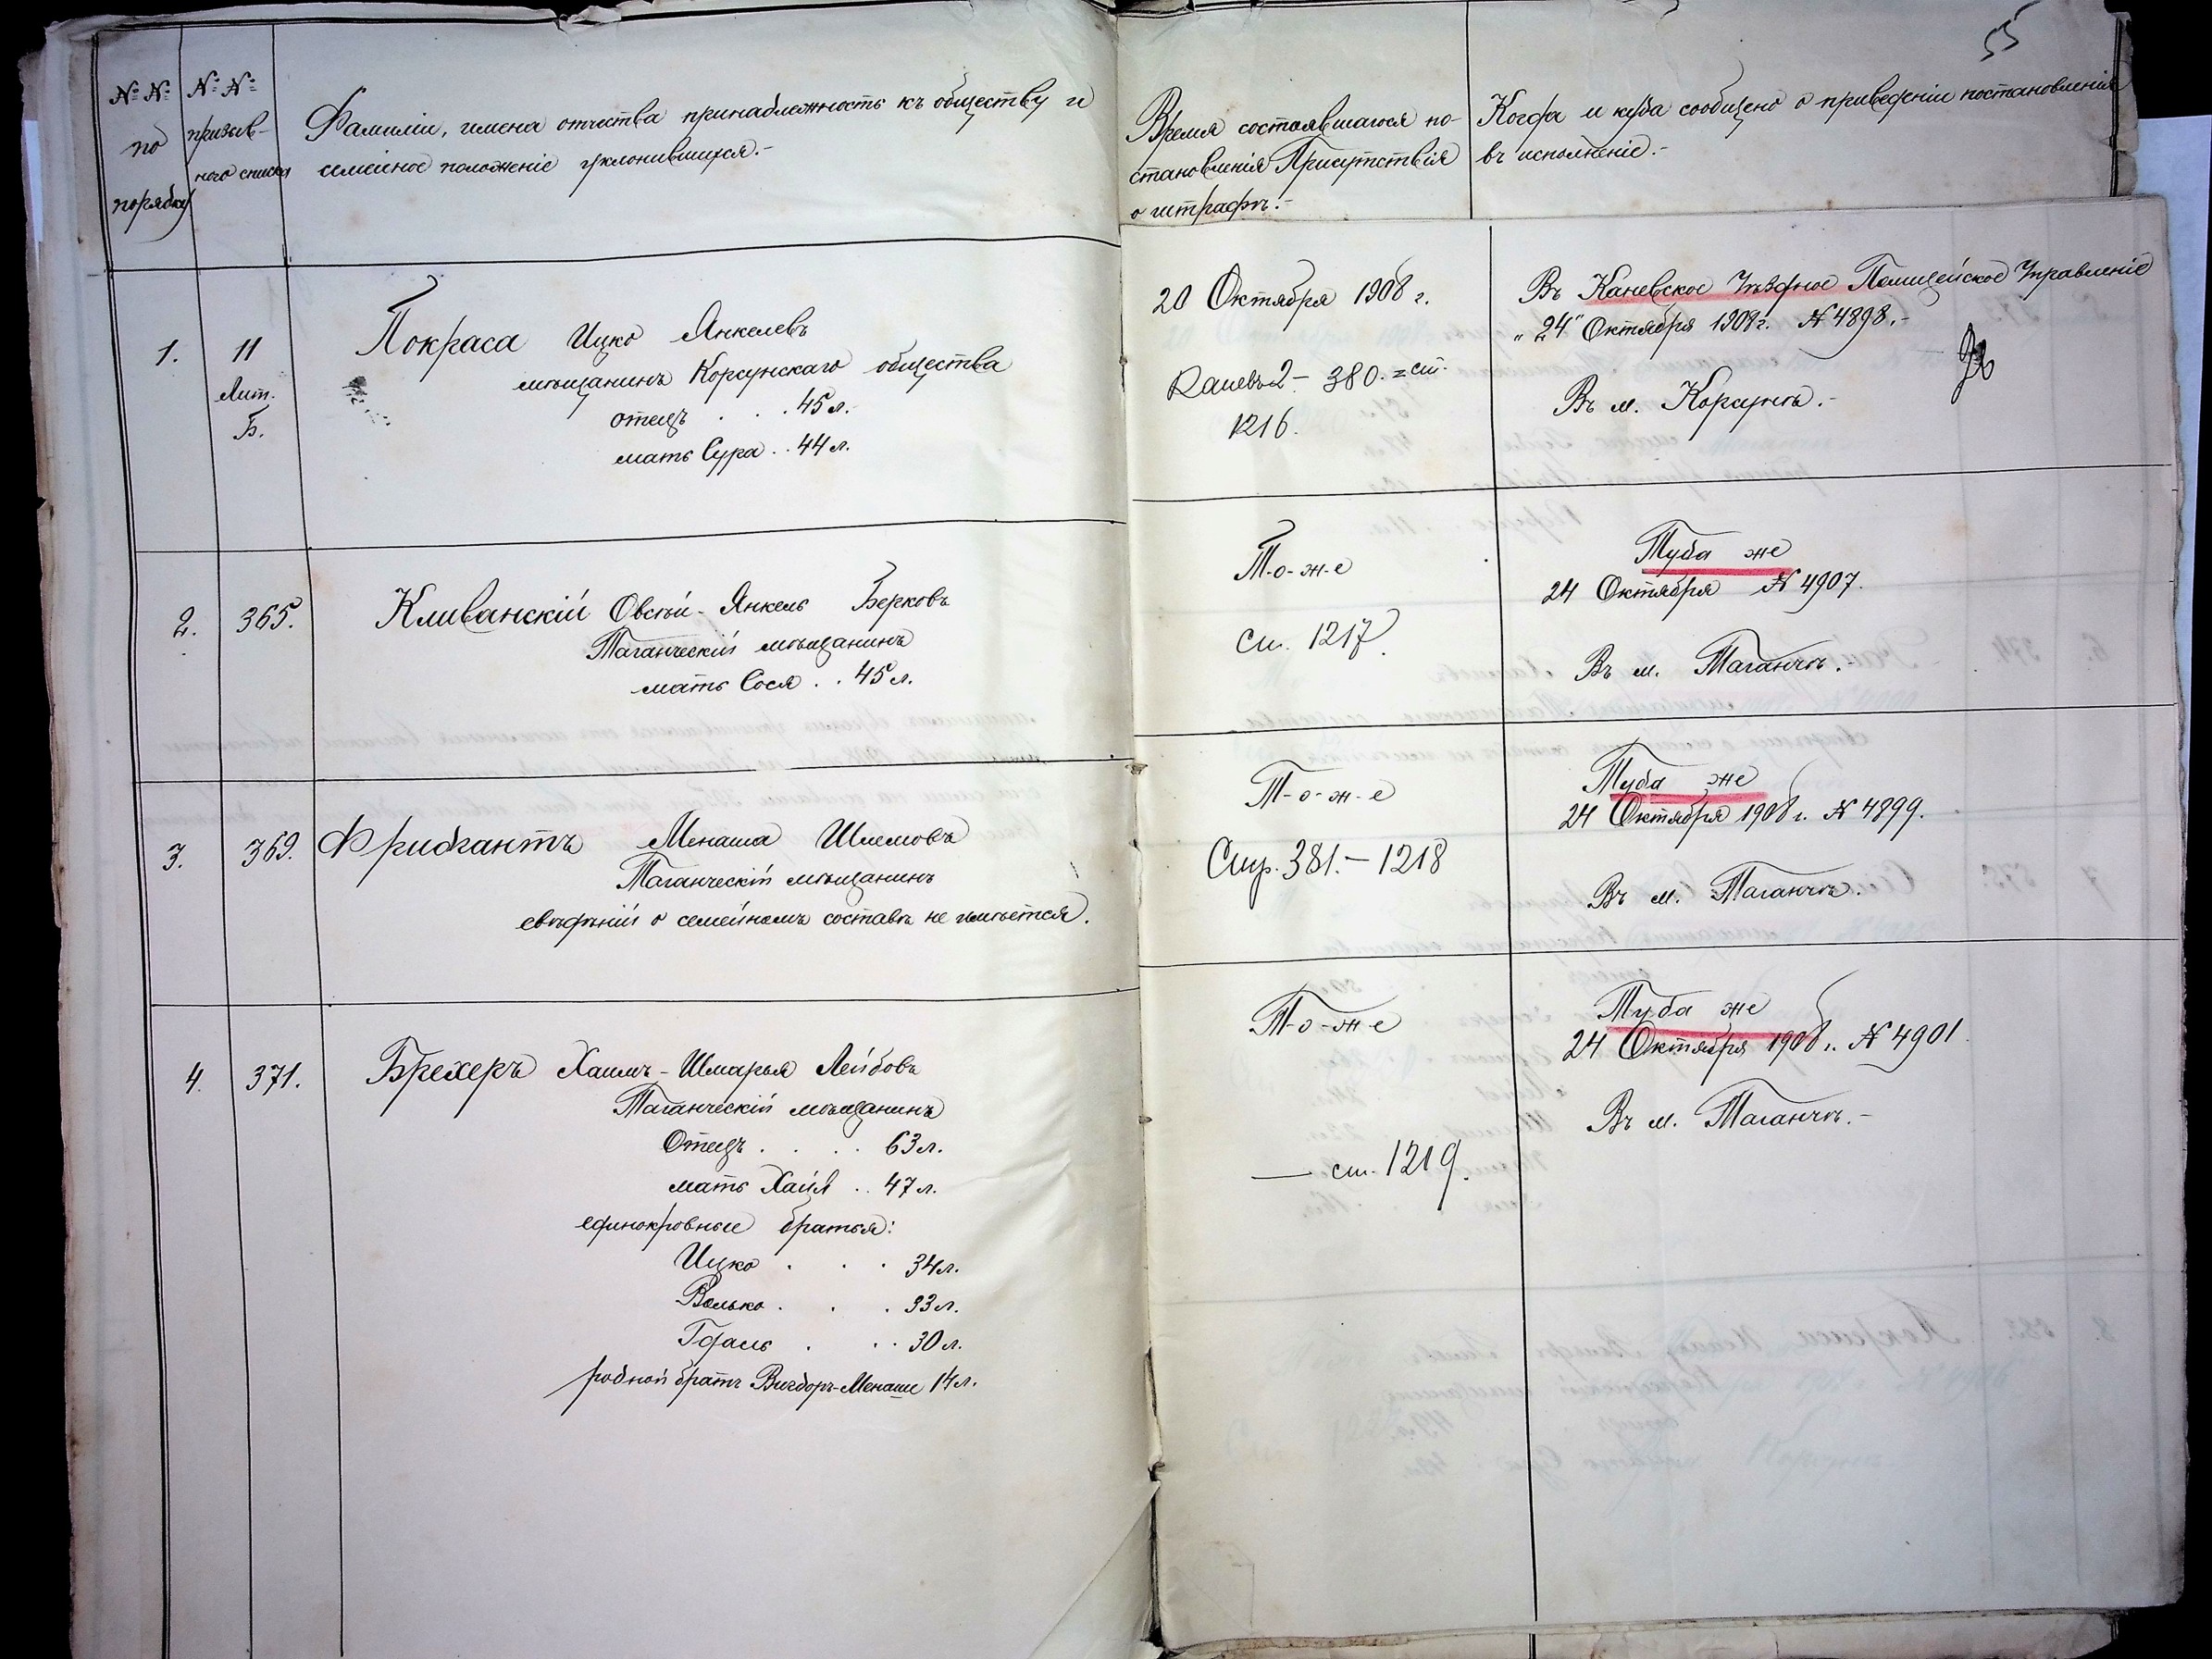 55
№ № по порядку
№ № призыв-
ного списка
Фамиліи, имена отчества принадлежность къ обществу и
семейное положеніе уклонившихся.-
Время состоявшагося по-
становленія Присутствія
о штрафѣ.-
Когда и куда сообщено о приведеніи постановленія
въ исполненіе.-
1.
11
Лит.
Б.
Покраса Ицко Янкелевъ
мѣщанинъ Корсунскаго общества
отецъ . . . 45 л.
мать Сура . . 44 л.
20 Октября 1908 г.
Каневъ 2 - 380. = ст.
1216.
Въ Каневское Уѣздное Полицейское Управленіе
"24" Октября 1908 г. № 4898.-
Въ м. Корсунь.-
2.
365.
Кливанскій Овсѣй-Янкель Берковъ
Таганческій мѣщанинъ
мать Сося . . 45 л.
Т-о-ж-е
ст. 1217.
Туда же
24 Октября № 4907.
Въ м. Таганчѣ.-
3.
369.
Фридгантъ Менаша Шлемовъ
Таганческій мѣщанинъ
свѣдѣній о семейномъ составѣ не имѣется.
Т-о-ж-е
Стр. 381. - 1218
Туда же
24 Октября 1908 г. № 4899.
Въ м. Таганчѣ.
4.
371.
Брехеръ Хаимъ-Шмарья Лейбовъ
Таганческій мѣщанинъ
Отецъ . . . . 63 л.
мать Хая . . 47 л.
единокровные братья:
Ицко . . . 34 л.
Волько . . . 33 л.
Гдаль . . . 30 л.
родной братъ Вигдоръ-Менаше 14 л.
Т-о-ж-е
— ст. 1219.
Туда же
24 Октября 1908 г. № 4901
Въ м. Таганчѣ.-